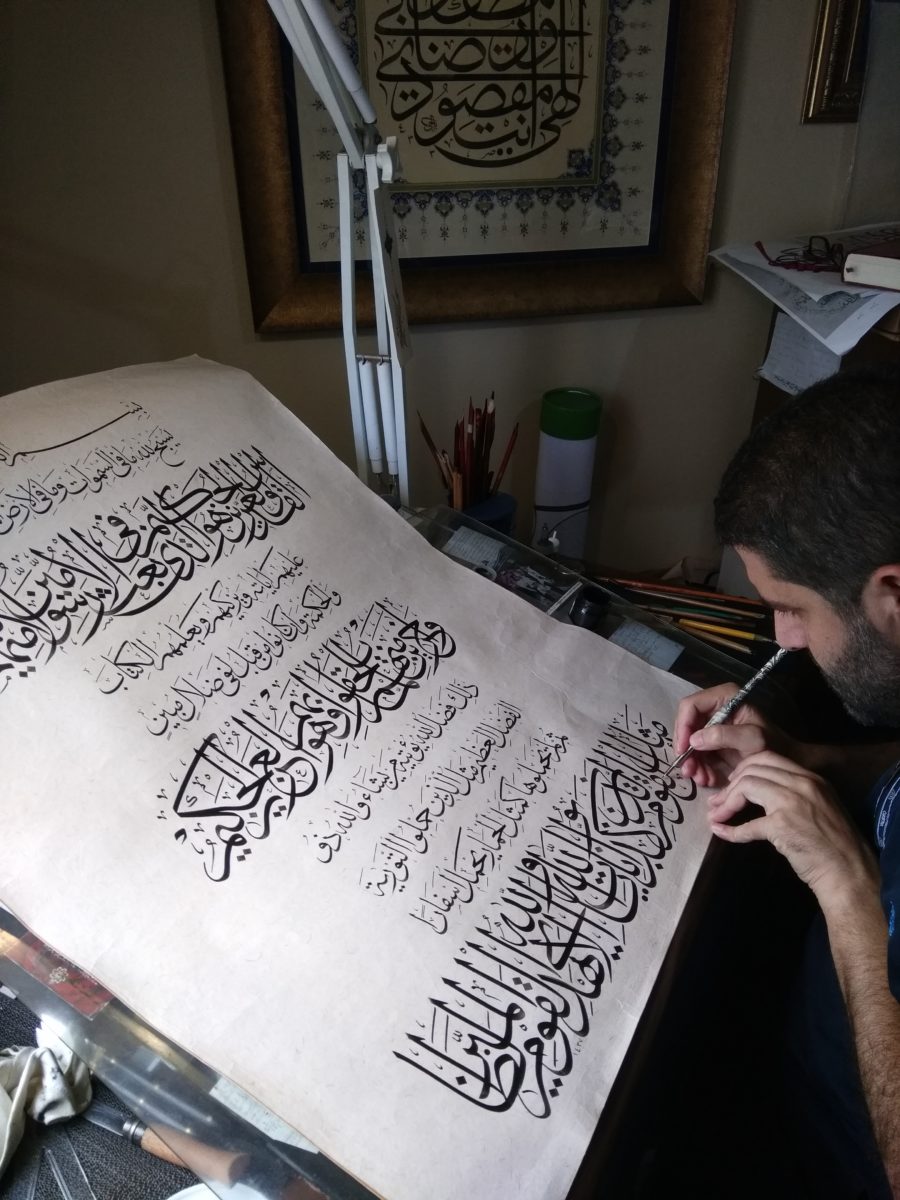 الهي انت مقصودي
بسم
يسبح لله ما في السموات وما في الارض
العزيز الحكيم هو الذي بعث في الاميين رسولا منهم
عليهم آياته ويزكيهم ويعلمهم الكتاب
والحكمة وان كانوا من قبل لفي ضلال مبين
وآخرين منهم لما يلحقوا بهم وهو العزيز الحكيم
ذلك فضل الله يؤتيه من يشاء والله ذو
الفضل العظيم مثل الذين حملوا التورية
ثم لم يحملوها كمثل الحمار يحمل اسفارا
مثل القوم الذين كذبوا بآيات الله والله لا يهدي القوم الظالمين